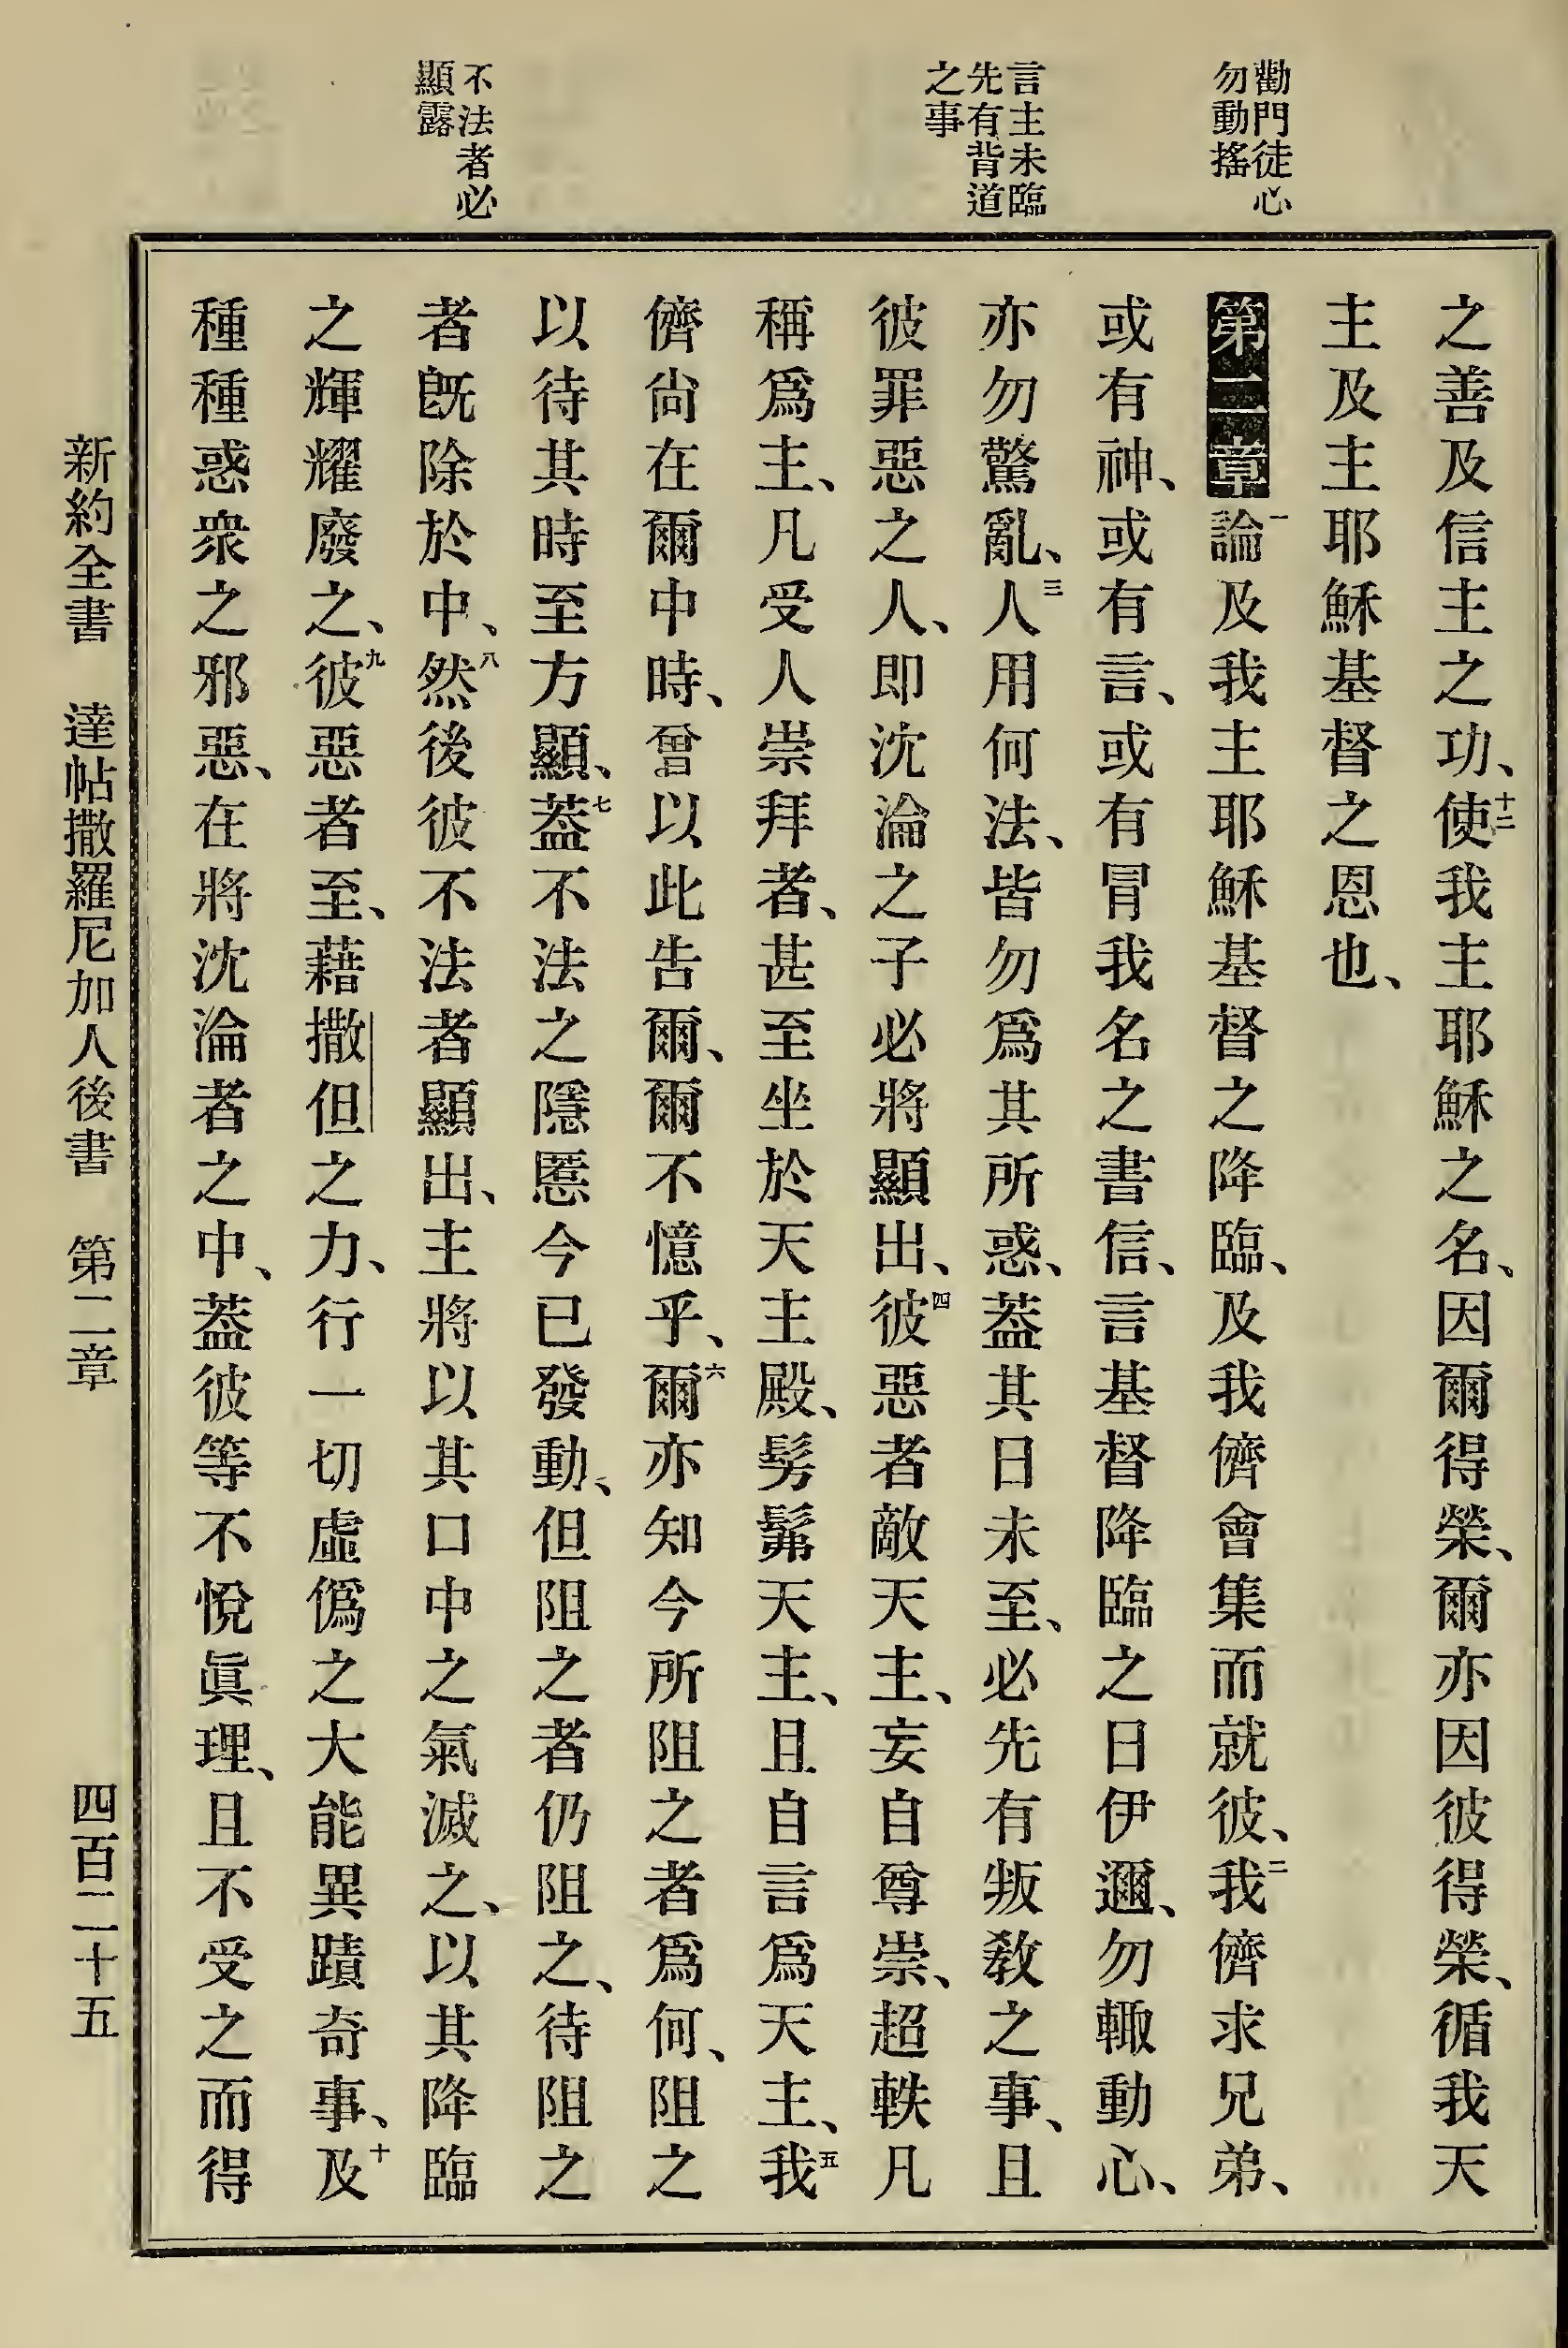 勸門徒心
勿動搖
言主未臨
先有背道
之事
不法者必
顯露
之善及信主之功、十二使我主耶穌之名、因爾得榮、爾亦因彼得榮、循我天
主及主耶穌基督之恩也、
第二章一論及我主耶穌基督之降臨、及我儕會集而就彼、二我儕求兄弟、
或有神、或有言、或有冒我名之書信、言基督降臨之日伊邇、勿輙動心、
亦勿驚亂、三人用何法、皆勿爲其所惑、葢其日未至、必先有叛教之事、且
彼罪惡之人、即沈淪之子必將顯出、四彼惡者敵天主、妄自尊崇、超軼凡
稱爲主、凡受人崇拜者、甚至坐於天主殿、髣髴天主、且自言爲天主、五我
儕尙在爾中時、曾以此告爾、爾不憶乎、六爾亦知今所阻之者爲何、阻之
以待其時至方顯、七葢不法之隱慝今已發動、但阻之者仍阻之、待阻之
者旣除於中、八然後彼不法者顯出、主將以其口中之氣滅之、以其降臨
之輝耀廢之、九彼惡者至、藉撒但之力、行一切虛僞之大能異蹟奇事、十及
種種惑衆之邪惡、在將沈淪者之中、葢彼等不悅眞理、且不受之而得
新約全書 達帖撒羅尼加人後書 第二章 四百二十五